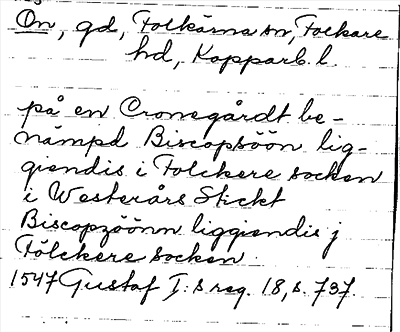 Ön, gd, Folkärna sn, Folkare
hd, Kopparb. l.
på en Cronegårdt be-
nämpd Biscopsöön lig-
giendis i Folckere socken
i Westerårs Stickt
Biscopzöönn liggiendis j
Fölckere socken.
1547 Gustaf I:s reg. 18, s. 737.